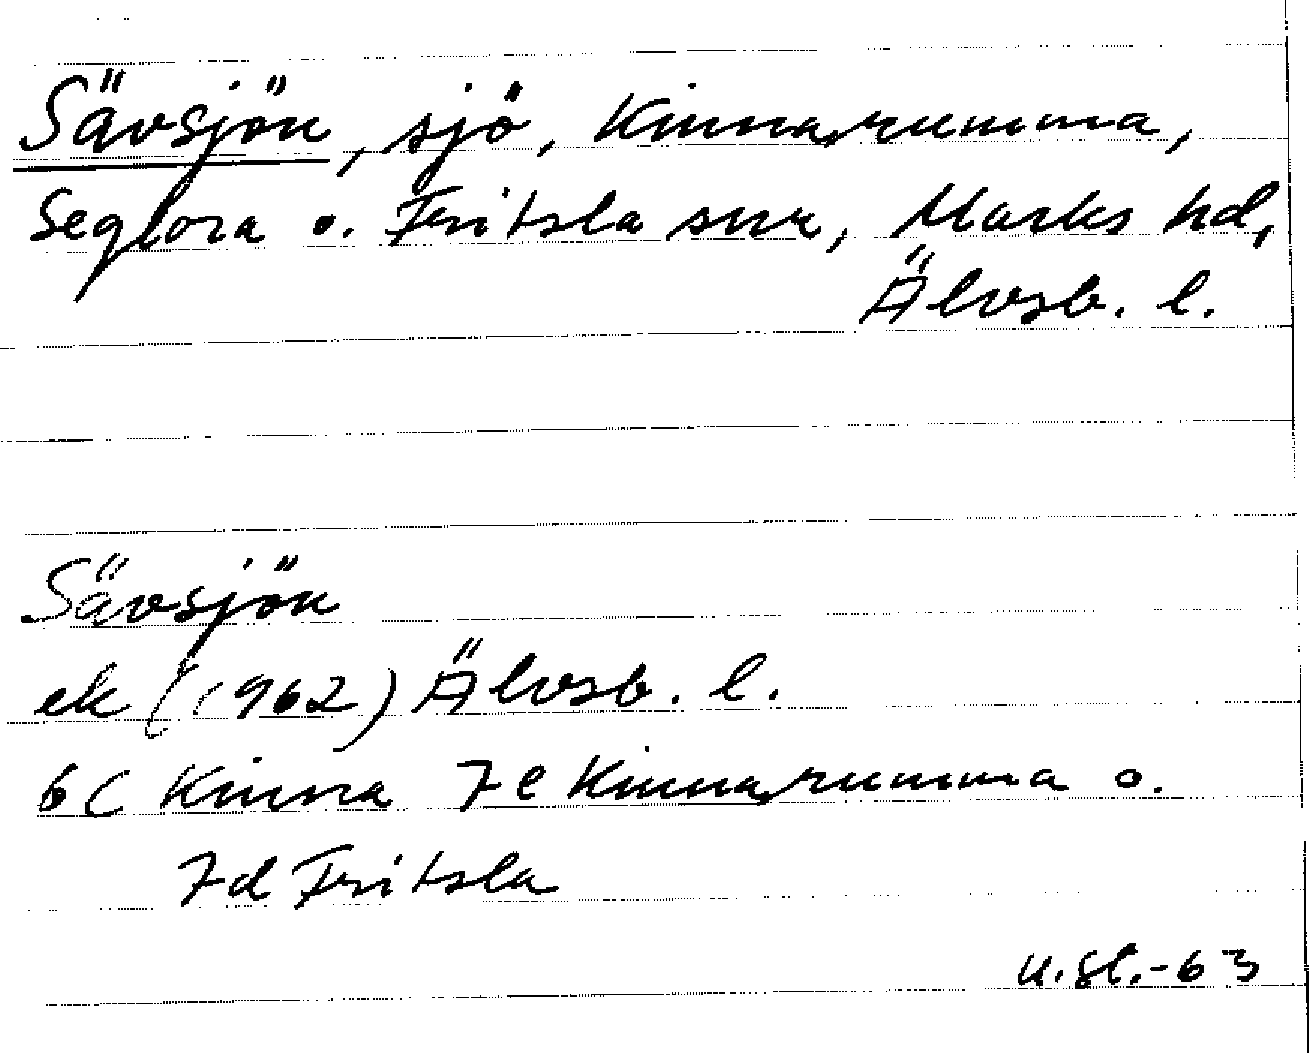 Sävsjön, sjö, Kinnarumma,
Seglora o. Fritsla snr, Marks hd,
Älvsb. l.
Sävsjön
ek (1962) Älvsb. l.
6C Kinna 7e Kinnarumma o.
7d Fritsla
U.St.-63